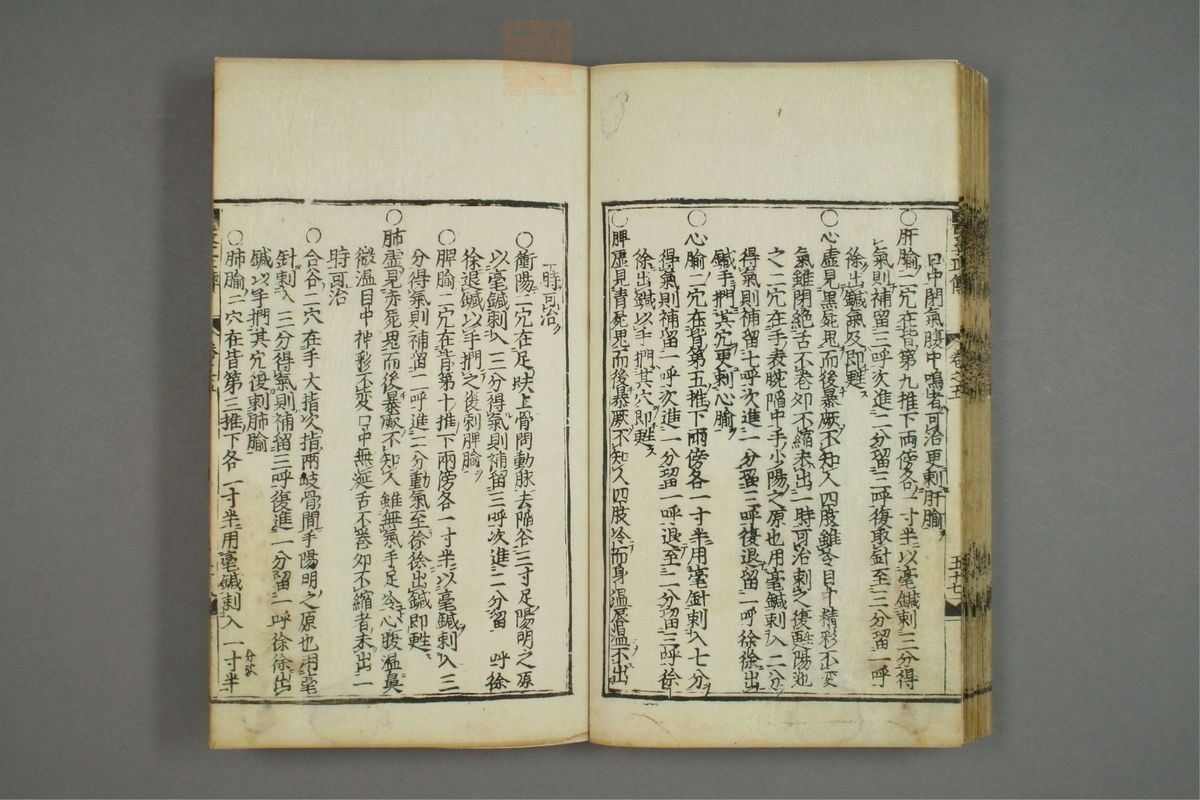 口中閉氣腹中鳴者可治更刺肝腧
○肝腧二穴在背第九推下両傍各一寸半以毫鍼刺三分得
氣則補留三呼次進二分留三呼復取針至三分留一呼
徐出鍼氣及即甦
○心虛見黒屍鬼而後暴厥不知人四肢雖冷目中精彩不変
氣雖閉絶舌不卷夘不縮未出一時可治刺之復甦陽池
之二穴在手表腕陥中手少陽之原也用毫鍼刺入二分
得氣則補留七呼次進一分留三呼復退留一呼徐徐出
鍼手捫其穴更刺心腧
○心腧二穴在背第五推下両傍各一寸半用毫針刺入七分
得氣則補留一呼次進一分留一呼退至二分留三呼徐
徐出鍼以手捫其穴即甦
○脾虛見青屍鬼而後暴厥不知人四肢冷而身温唇温不出
一時可治
○衝陽二穴在足趺上骨間動脉去陥谷三寸足陽明之原
以毫鍼刺入三分得氣則補留三呼次進二分留一呼徐
徐退鍼以手捫之後刺脾腧
○脾腧二穴在背第十推下兩傍各一寸半以毫鍼刺入三
分得氣則補留二呼進二分動氣至徐徐出鍼即甦
○肺虛見赤屍鬼而後暴厥不知人雖無氣手足冷心腹温鼻
微温目中神彩不変口中無涎舌不卷夘不縮者未出一
時可治
○合谷二穴在手大指次指兩岐骨間手陽明之原也用毫
針刺入三分得氣則補留三呼復進二分留一呼徐徐出
鍼以手捫其穴復刺肺腧
○肺腧二穴在背第三推下各一寸半用毫鍼刺入一寸半
卷之五
五十七